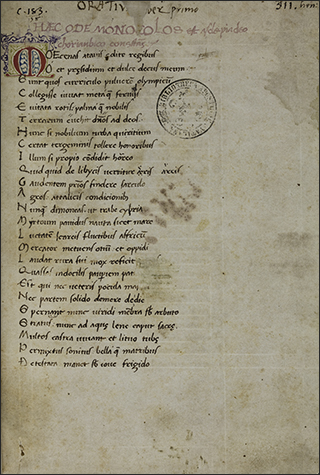 C. 183.
HORATIV
ver primo
311. hen
HEC ODE MONOCOLOS est asclepiadeo
choriambico constans
MOECenas atauis edite regibus
O et presidium et dulce decus meum
Sunt quos curriculo puluerem olympicu
Collegisse iuuat metaq feruidis
Euitata rotis palma q nobilis
Terrarum euehit dnos ad deos
Hunc si nobilium turba quiritium
Certat tergeminis tollere honoribus
Illum si proprio condidit horreo
Quid quid de libycis uerritur areis
Gaudentem patrios findere sarculo
Agros attalicis condicionibus
Nunq dimoueas ut trabe cypria
Myrtoum pauidus nauta secet mare
Luctantem icareis fluctibus africum
Mercator metuens otium et oppidi
Laudat rura sui mox reficit
Quassas indocilis pauperiem pati
Est qui nec ueteris pocula ma
Nec partem solido demere de die
Spernit nunc uiridi mebra sb arbuto
Stratus nunc ad aque lene caput sacre
Multos castra iuuant et lituo tube
Permixtus sonitus bella q matribus
Detestata manet sb ioue frigido